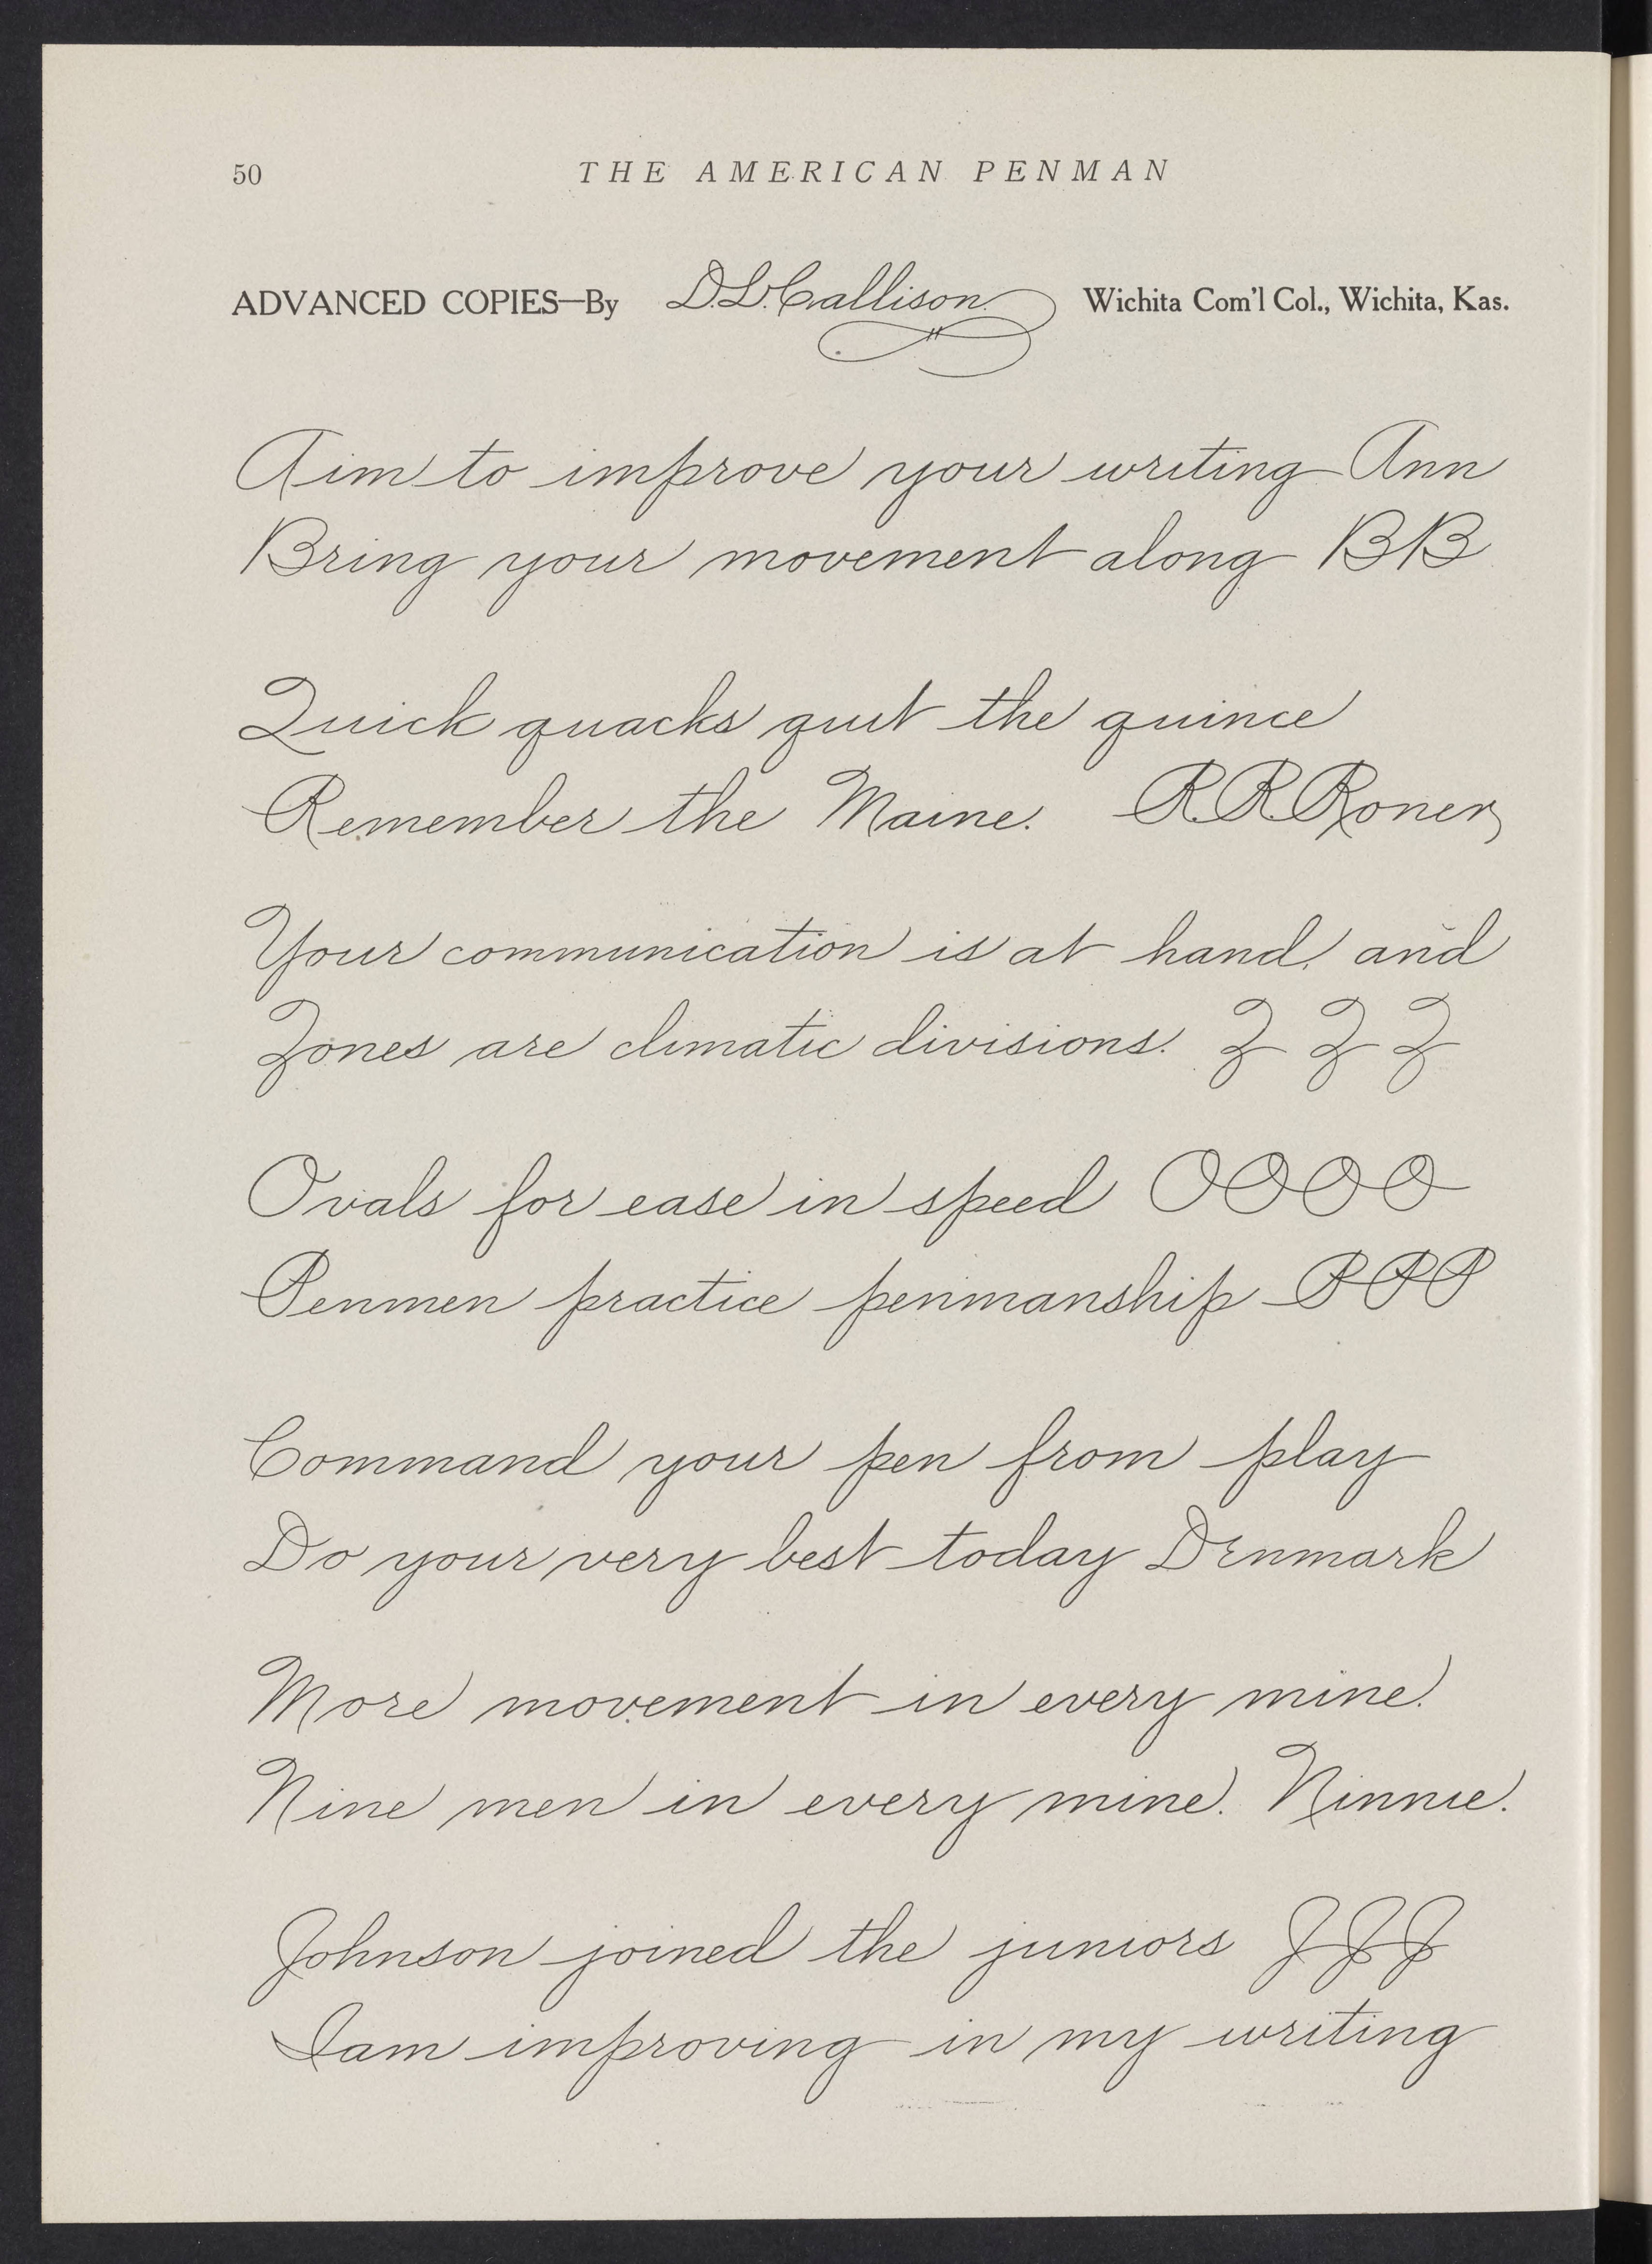 50 THE AMERICAN PENMAN
ADVANCED COPIES—By D.L. Callison. Wichita Com'l Col., Wichita, Kas.
Aim to improve your writing Ann
Bring your movement along BB
Quick quacks quit the quince
Remember the Maine. R.R.Roner
Your communication is at hand, and
Zones are climatic divisions. Z Z Z
Ovals for ease in speed OOOO
Penmen practice penmanship PPP
Command your pen from play
Do your very best today Denmark
More movement in every mine.
Nine men in every mine. Ninnie.
Johnson joined the juniors JJJ
I am improving in my writing